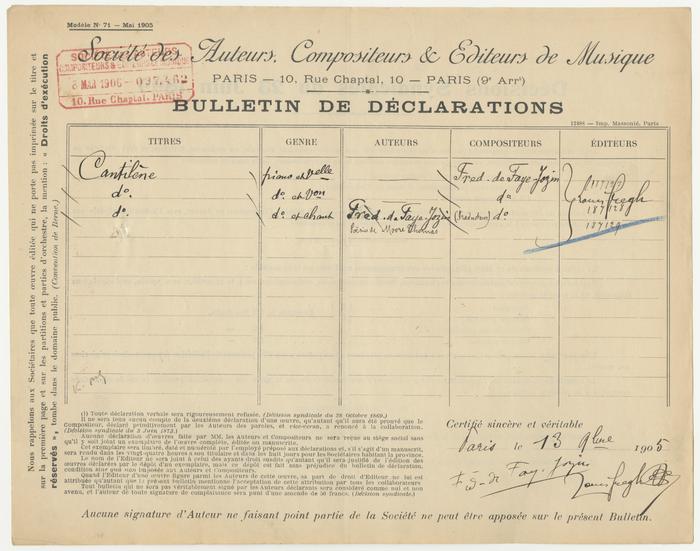 Modèle N° 71 — Mai 1905
Société des Auteurs, Compositeurs & Editeurs de Musique
PARIS — 10, Rue Chaptal, 10 — PARIS (9e Arrt)
10. Rue Chaptal. PARIS
BULLETIN DE DÉCLARATIONS
12388 — Imp. Massonié, Paris
TITRES GENRE AUTEURS COMPOSITEURS ÉDITEURS
Cantilène piano et velle Fred. de Faye-Jozin
do. do. et von do.
do. do. et chant Fréd. de Faye-Jozin do.
Louis Gregh
187128
187129
Nous rappelons aux Sociétaires que toute œuvre éditée qui ne porte pas imprimée sur le titre et
sur la première page et sur les partitions et parties d'orchestre, la mention : « Droits d'exécution
réservés », tombe dans le domaine public. (Convention de Berne.)
(1) Toute déclaration verbale sera rigoureusement refusée. (Décision syndicale du 28 Octobre 1869.)
Il ne sera tenu aucun compte de la deuxième déclaration d'une œuvre, qu'autant qu'il aura été prouvé que le
Compositeur, déclaré primitivement par les Auteurs des paroles, et réserves, a renoncé à la collaboration.
(Décision syndicale du 3 Juin 1872.)
Aucune déclaration d'œuvres faite par MM. les Auteurs et Compositeurs ne sera reçue au siège social sans
qu'il y soit joint un exemplaire de l'œuvre complète, éditée ou manuscrite.
Cet exemplaire sera timbré, daté et numéroté par l'employé préposé aux déclarations et, s'il s'agit d'un manuscrit,
sera rendu dans les vingt-quatre heures à son titulaire et dans les huit jours pour les Sociétaires habitant la province.
Le nom de l'Éditeur ne sera joint à celui des ayants droit susdits qu'autant qu'il sera justifié de l'édition des
œuvres déclarées par le dépôt d'un exemplaire, mais ce dépôt est fait sans préjudice du bulletin de déclaration,
condition sine qua non imposée aux Auteurs et Compositeurs.
Quand l'Éditeur d'une œuvre figure parmi les auteurs de cette œuvre, sa part de droit d'Editeur ne lui est
attribuée qu'autant que le présent bulletin mentionne l'acceptation de cette attribution par tous les collaborateurs
Tout bulletin qui ne sera pas véritablement signé par les Auteurs déclarants sera considéré comme nul et non
avenu, et l'auteur de toute signature de complaisance sera puni d'une amende de 50 francs. (Décision syndicale.)
Certifié sincère et véritable
Paris le 13 9bre 1905
F. de Faye-Jozin
Louis Gregh
Aucune signature d'Auteur ne faisant point partie de la Société ne peut être apposée sur le présent Bulletin.